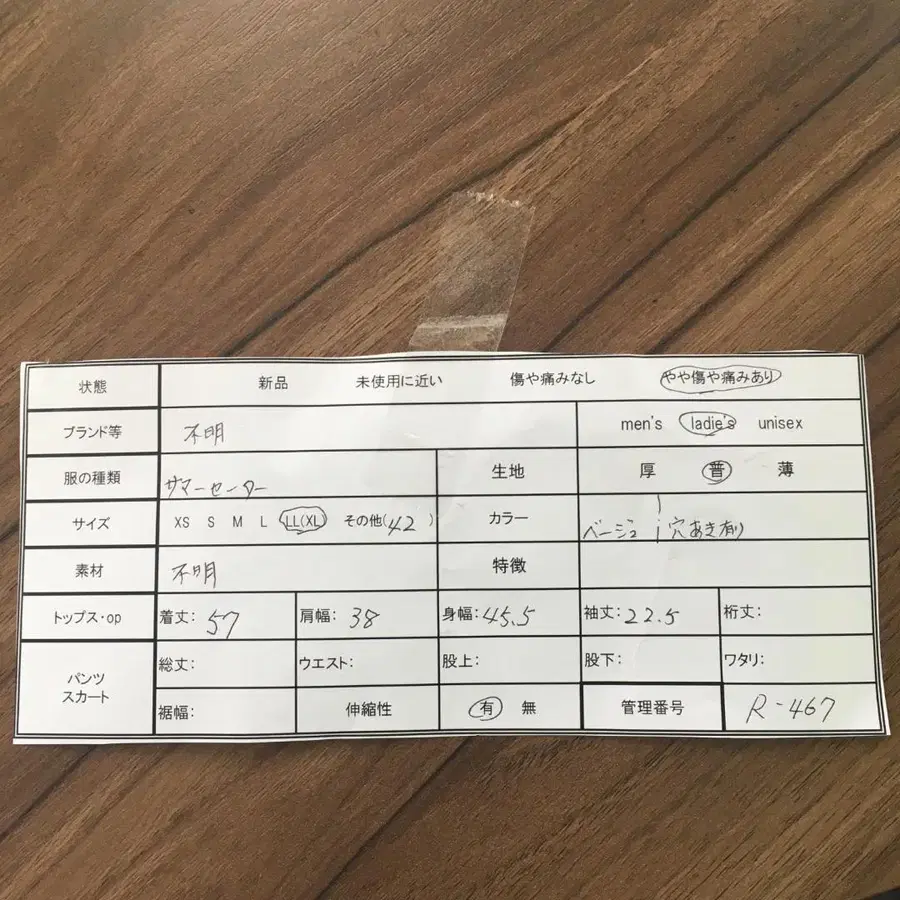 状態 新品 未使用に近い 傷や痛みなし やや傷や痛みあり
ブランド等 不明 men's ladie's unisex
服の種類 サマーセーター 生地 厚 普 薄
サイズ XS S M L LL(XL) その他(42) カラー ベージュ 穴あき有り
素材 不明 特徴
トップス・op 着丈: 57 肩幅: 38 身幅: 45.5 袖丈: 22.5 裄丈:
パンツ スカート 総丈: ウエスト: 股上: 股下: ワタリ:
裾幅: 伸縮性 有 無 管理番号 R-467